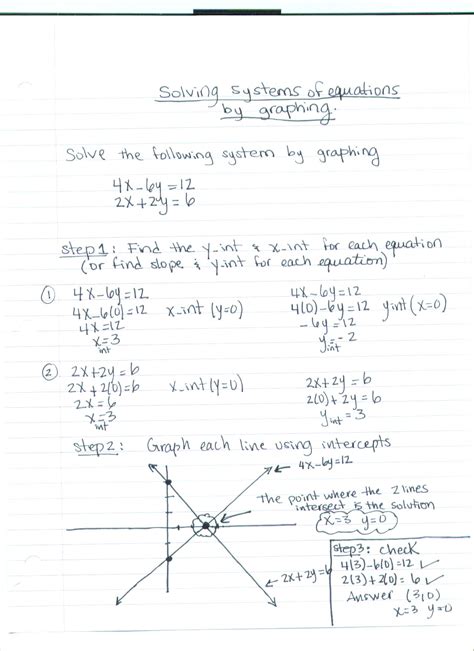 Solving systems of equations
by graphing.
Solve the following system by graphing
4x-6y=12
2x+2y=6
step1: Find the y-int & x-int for each equation
(or find slope & y-int for each equation)
① 4x-6y=12
4x-6(0)=12 x-int (y=0)
4x=12
x=3
int
4x-6y=12
4(0)-6y=12 y int (x=0)
-6y=12
y=-2
int
② 2x+2y=6
2x+2(0)=6 x-int (y=0)
2x=6
x=3
int
2x+2y=6
2(0)+2y=6
y int=3
step2: Graph each line using intercepts
4x-6y=12
The point where the 2 lines
intersect is the solution
x=3 y=0
2x+2y=6
step3: check
4(3)-6(0)=12 ✓
2(3)+2(0)=6 ✓
Answer (3,0)
x=3 y=0